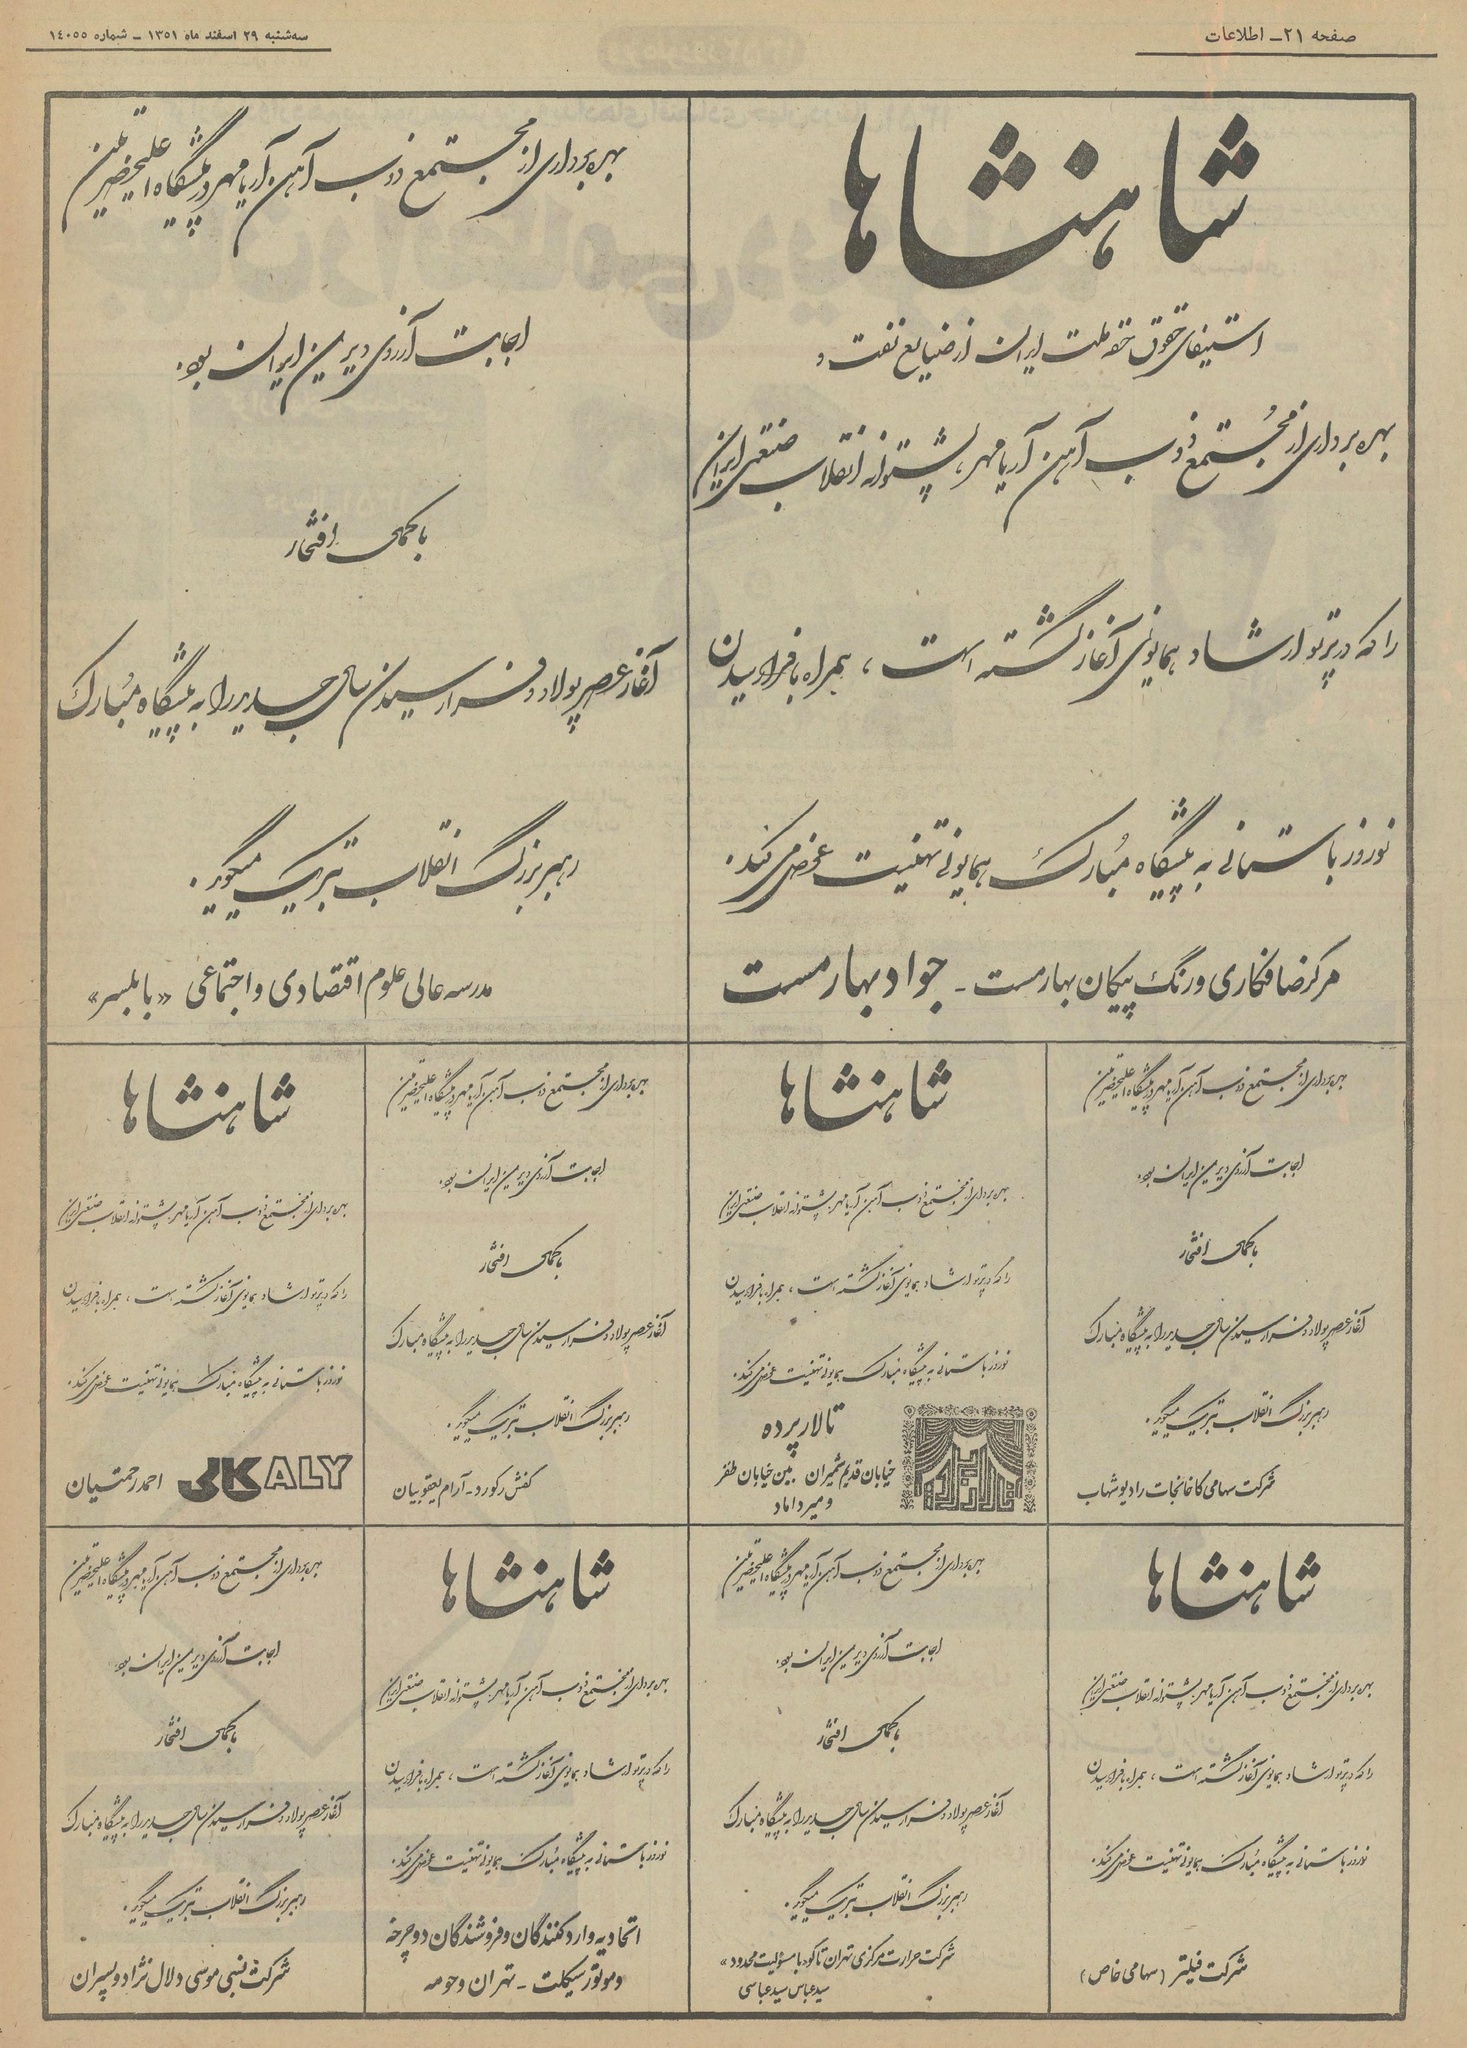 صفحه ۲۱ـ اطلاعات
سه‌شنبه ۲۹ اسفند ماه ۱۳۵۱ ـ شماره ۱۴۰۵۵
شاهنشاها
استیفای حقوق حقه ملت ایران از صنایع نفت و
بهره برداری از مجتمع ذوب آهن آریامهر، پشتوانه انقلاب صنعتی ایران
را که در پرتو ارشاد همایونی آغاز گشته است ، همراه با فرارسیدن
نوروز باستانی به پیشگاه مبارک همایونی تهنیت عرض می کند .
مرکز صافکاری و رنگ پیکان بهارمست ـ جواد بهارمست
بهره برداری از مجتمع ذوب آهن آریامهر در پیشگاه اعلیحضرتین
اجابت آرزوی دیرین ایران بود .
با کمال افتخار
آغاز عصر پولاد و فرارسیدن سال جدید را به پیشگاه مبارک
رهبر بزرگ انقلاب تبریک میگوید .
مدرسه عالی علوم اقتصادی و اجتماعی «بابلسر»
بهره برداری از مجتمع ذوب آهن آریامهر در پیشگاه اعلیحضرتین
اجابت آرزوی دیرین ایران بود .
با کمال افتخار
آغاز عصر پولاد و فرارسیدن سال جدید را به پیشگاه مبارک
رهبر بزرگ انقلاب تبریک میگوید .
شرکت سهامی کارخانجات رادیو شهاب
شاهنشاها
بهره برداری از مجتمع ذوب آهن آریامهر، پشتوانه انقلاب صنعتی ایران
را که در پرتو ارشاد همایونی آغاز گشته است ، همراه با فرارسیدن
نوروز باستانی به پیشگاه مبارک همایونی تهنیت عرض می کند .
تالار پرده
خیابان قدیم شمیران بین خیابان ظفر
و میرداماد
بهره برداری از مجتمع ذوب آهن آریامهر در پیشگاه اعلیحضرتین
اجابت آرزوی دیرین ایران بود .
با کمال افتخار
آغاز عصر پولاد و فرارسیدن سال جدید را به پیشگاه مبارک
رهبر بزرگ انقلاب تبریک میگوید .
کفش رکورد ـ آرام یعقوبیان
شاهنشاها
بهره برداری از مجتمع ذوب آهن آریامهر، پشتوانه انقلاب صنعتی ایران
را که در پرتو ارشاد همایونی آغاز گشته است ، همراه با فرارسیدن
نوروز باستانی به پیشگاه مبارک همایونی تهنیت عرض می کند .
KALY کالی احمد رحمتیان
شاهنشاها
بهره برداری از مجتمع ذوب آهن آریامهر، پشتوانه انقلاب صنعتی ایران
را که در پرتو ارشاد همایونی آغاز گشته است ، همراه با فرارسیدن
نوروز باستانی به پیشگاه مبارک همایونی تهنیت عرض می کند .
شرکت فیلتر (سهامی خاص)
بهره برداری از مجتمع ذوب آهن آریامهر در پیشگاه اعلیحضرتین
اجابت آرزوی دیرین ایران بود .
با کمال افتخار
آغاز عصر پولاد و فرارسیدن سال جدید را به پیشگاه مبارک
رهبر بزرگ انقلاب تبریک میگوید .
شرکت حرارت مرکزی تهران تاکو «با مسئولیت محدود»
سید عباس سید عباسی
شاهنشاها
بهره برداری از مجتمع ذوب آهن آریامهر، پشتوانه انقلاب صنعتی ایران
را که در پرتو ارشاد همایونی آغاز گشته است ، همراه با فرارسیدن
نوروز باستانی به پیشگاه مبارک همایونی تهنیت عرض می کند .
اتحادیه وارد کنندگان و فروشندگان دوچرخه
و موتور سیکلت ـ تهران و حومه
بهره برداری از مجتمع ذوب آهن آریامهر در پیشگاه اعلیحضرتین
اجابت آرزوی دیرین ایران بود .
با کمال افتخار
آغاز عصر پولاد و فرارسیدن سال جدید را به پیشگاه مبارک
رهبر بزرگ انقلاب تبریک میگوید .
شرکت نسبی موسی دلال نژاد و پسران